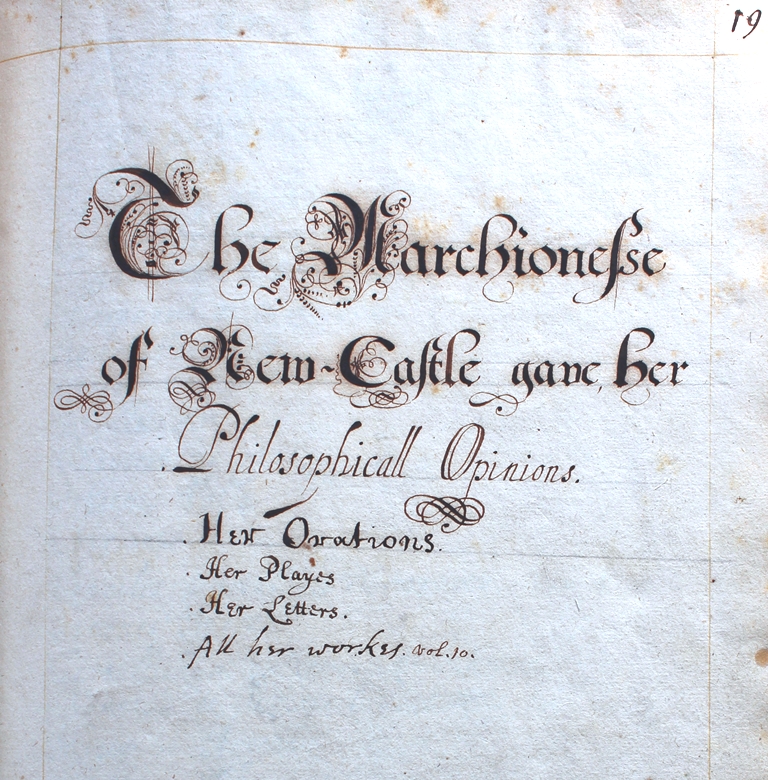 19
The Marchioneſse
of New-Caſtle gave her
Philosophicall Opinions.
. Her Orations.
. Her Playes
. Her Letters.
. All her workes. vol. 10.